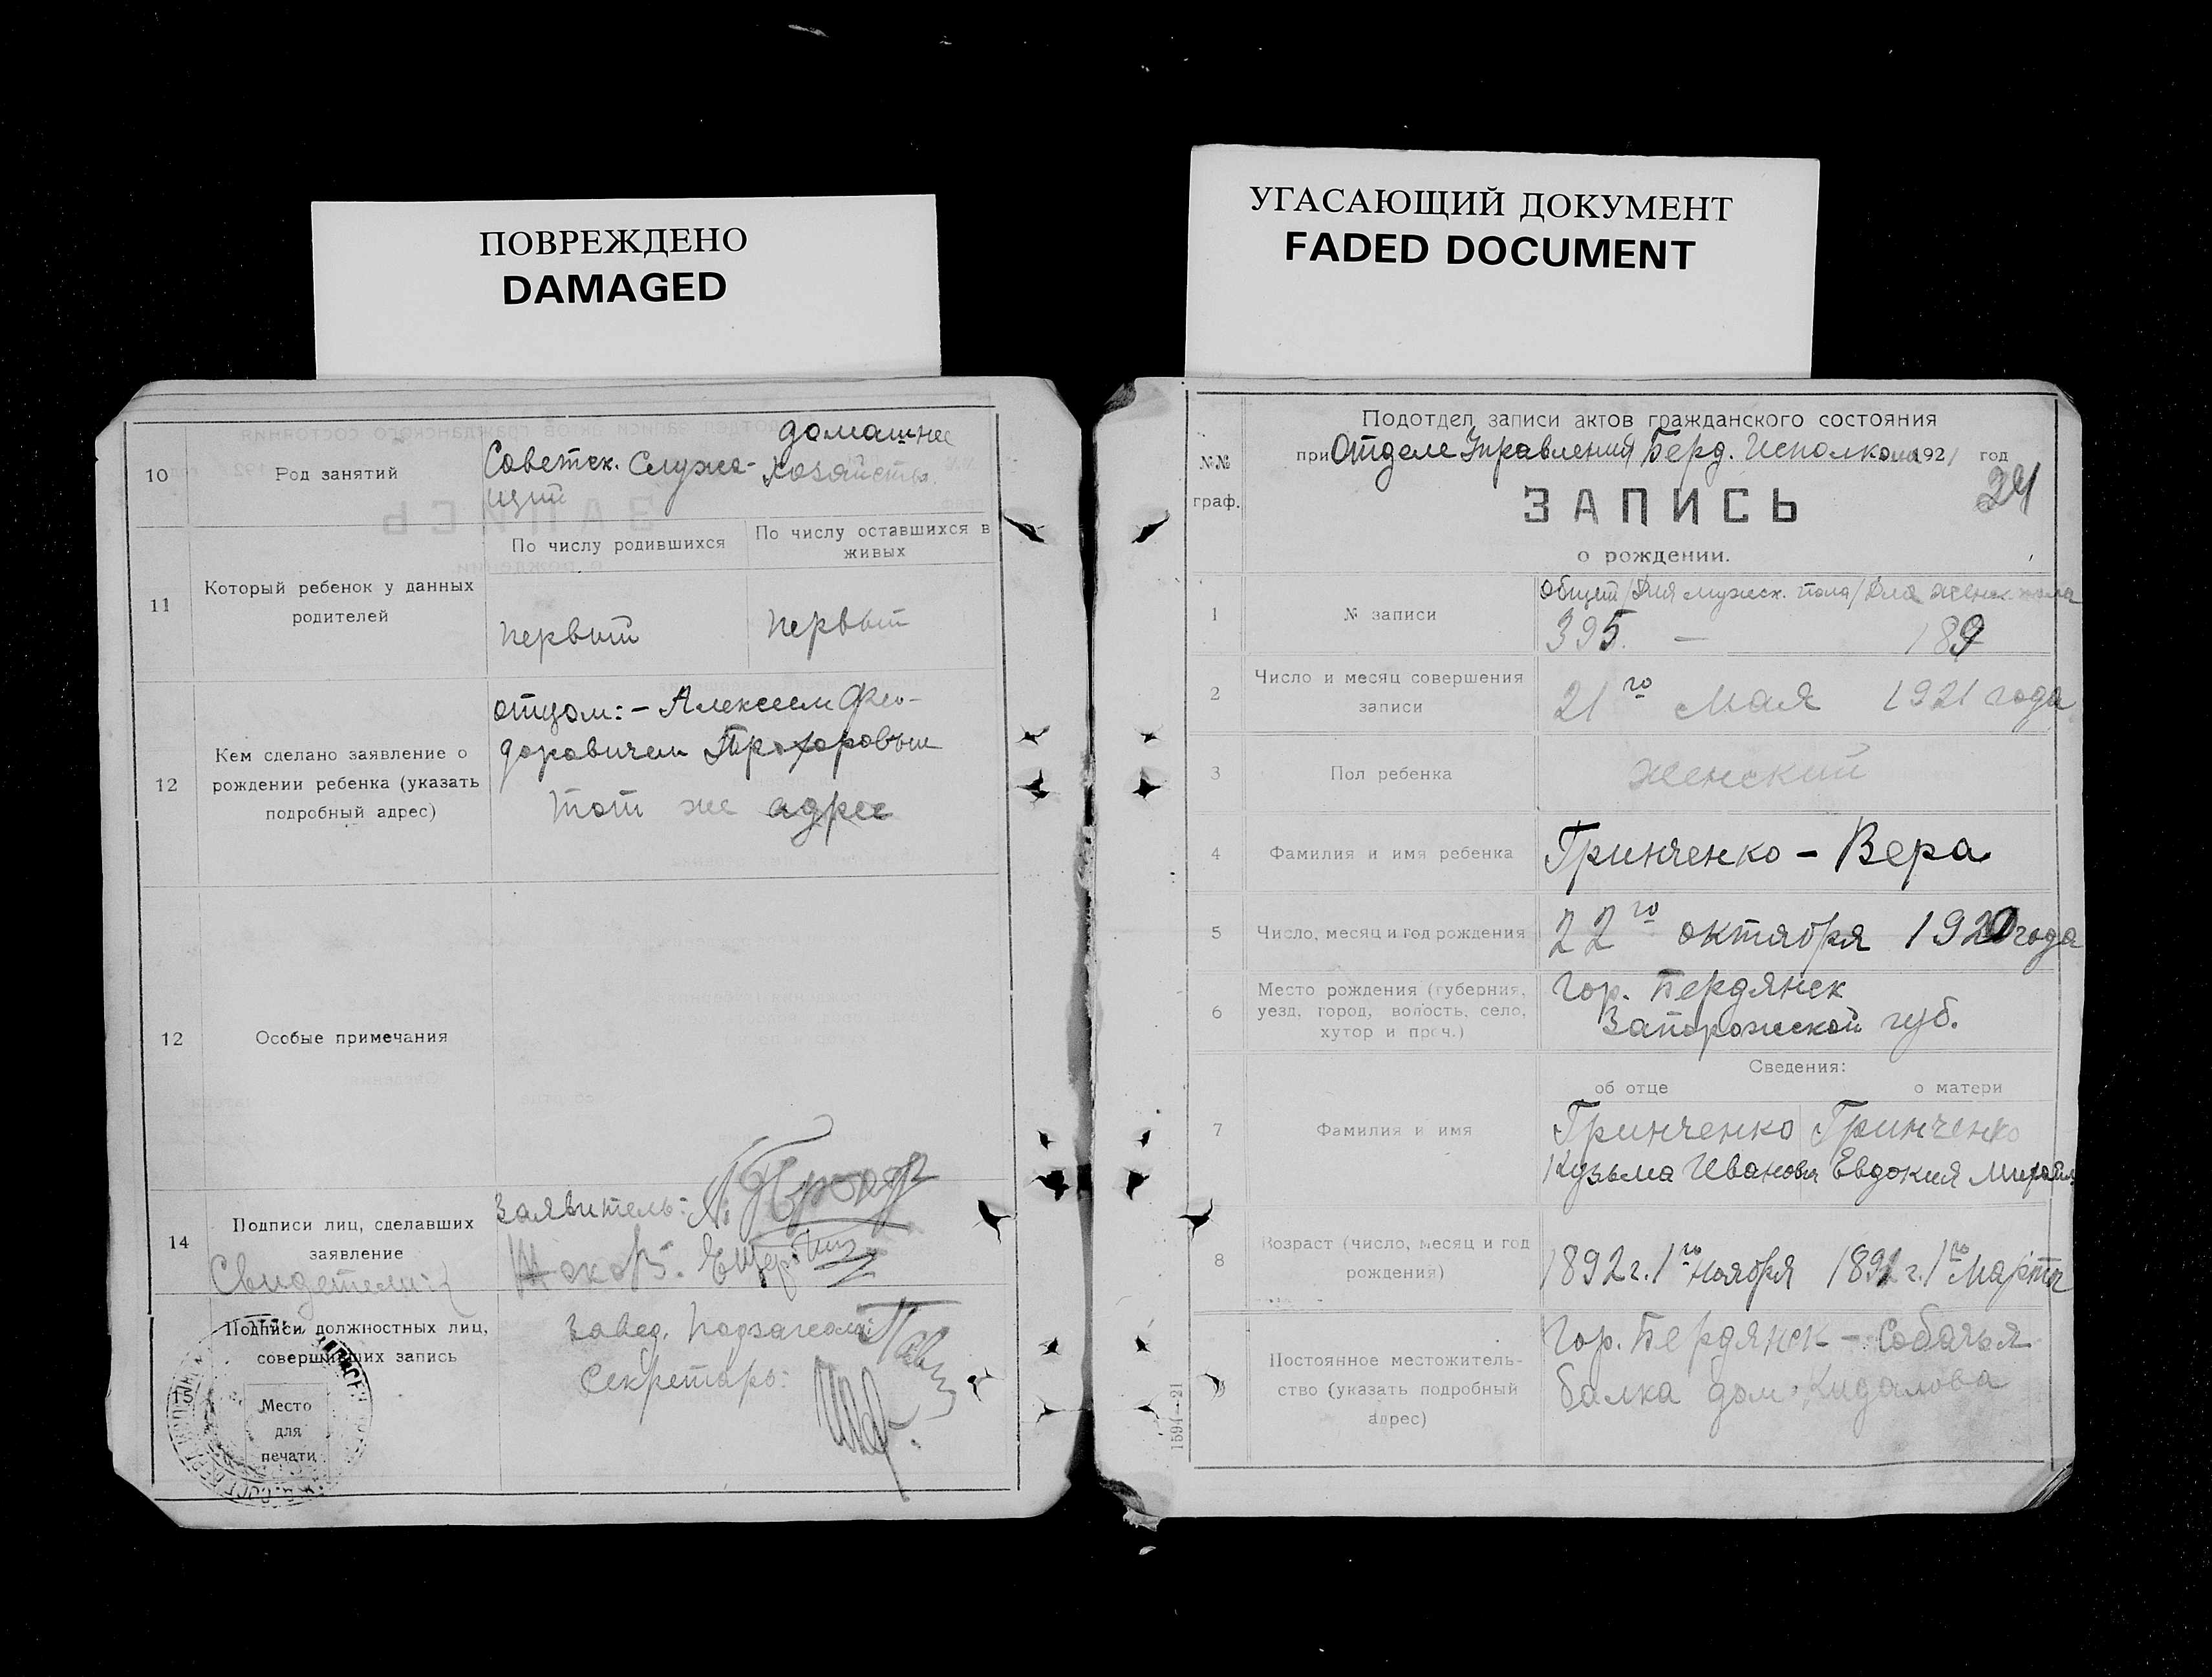 ПОВРЕЖДЕНО
DAMAGED
10
Род занятий
Советск. Служа-
щий
домашнее
хозяйство.
11
Который ребенок у данных
родителей
По числу родившихся
По числу оставшихся в
живых
первый
первый
12
Кем сделано заявление о
рождении ребенка (указать
подробный адрес)
отцом: – Алексеем Фео-
доровичем Прохоровым
тот же адрес
12
Особые примечания
14
Подписи лиц, сделавших
заявление
Свидетели:
Заявитель:
Подписи должностных лиц,
совершивших запись
15
Место
для
печати
Завед. Подзагсом:
Секретарь:
УГАСАЮЩИЙ ДОКУМЕНТ
FADED DOCUMENT
№№
граф.
Подотдел записи актов гражданского состояния
при Отделе Управления Берд. Исполкома 1921 год
24
ЗАПИСЬ
о рождении.
1
№ записи
Общий / Для мужск. пола / Для женск. пола
395. — 189
2
Число и месяц совершения
записи
21го Мая 1921 года
3
Пол ребенка
женский
4
Фамилия и имя ребенка
Гринченко – Вера
5
Число, месяц и год рождения
22го октября 1920 года
6
Место рождения (губерния,
уезд, город, волость, село,
хутор и проч.)
Гор. Бердянск
Запорожской губ.
Сведения:
об отце
о матери
7
Фамилия и имя
Гринченко
Кузьма Иванович
Гринченко
Евдокия
8
Возраст (число, месяц и год
рождения)
1892 г. 1го Ноября
1892 г. 1го Марта
9
Постоянное местожитель-
ство (указать подробный
адрес)
Гор. Бердянск – Собачья
балка дом Кидалова
1594—21